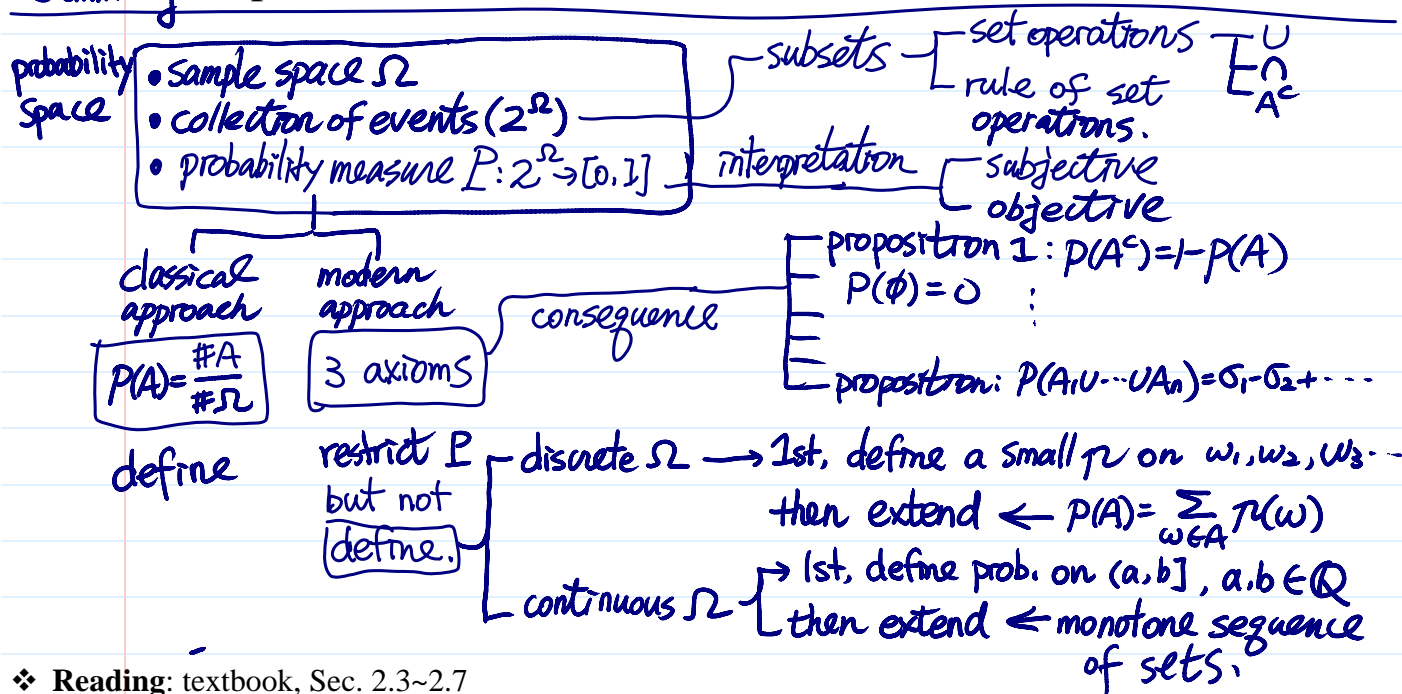 probability space
• sample space Ω
• collection of events (2^Ω)
• probability measure P: 2^Ω → [0,1]
subsets
set operations
∪
∩
A^c
rule of set operations.
interpretation
subjective
objective
classical approach
P(A) = #A / #Ω
define
modern approach
3 axioms
consequence
proposition 1: P(A^c) = 1 - P(A)
P(∅) = 0
⋮
proposition: P(A₁∪···∪Aₙ) = σ₁ - σ₂ + ····
restrict P
but not
define.
discrete Ω → 1st, define a small p on ω₁, ω₂, ω₃ ··
then extend ← P(A) = Σ_{ω∈A} p(ω)
continuous Ω
→ 1st, define prob. on (a,b], a,b ∈ ℚ
then extend ← monotone sequence
of sets.
❖ Reading: textbook, Sec. 2.3~2.7